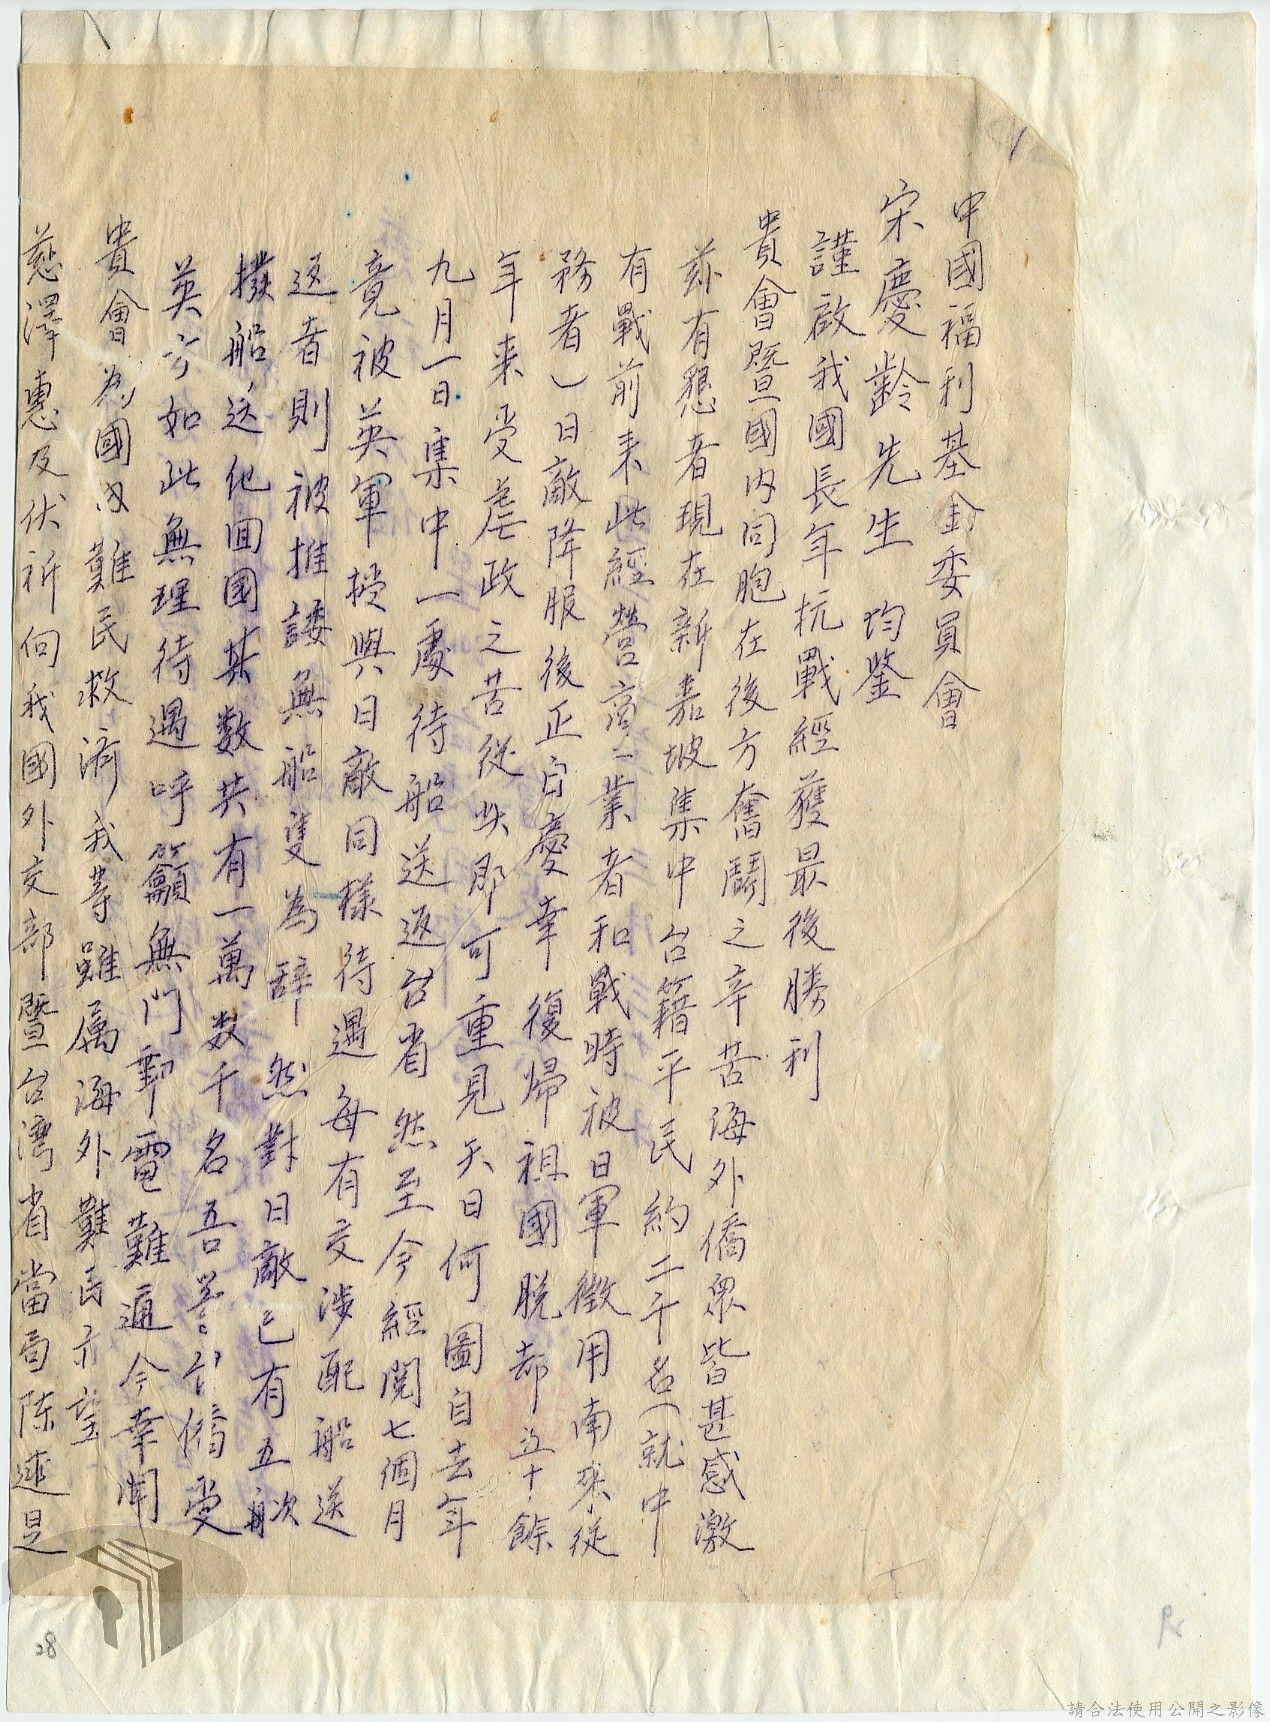 中國福利基金委員會
宋慶齡先生 均鑒
謹啟我國長年抗戰經獲最後勝利
貴會暨國内同胞在後方奮鬪之辛苦海外僑眾皆甚感激
茲有懇者現在新嘉坡集中台籍平民約二千名(就中
有戰前来此經營商工業者和戰時被日軍徵用南来從
務者)日敵降服後正自慶幸復歸祖國脱却五十餘
年来受虐政之苦從此即可重見天日何圖自去年
九月一日集中一處待船送返台省然至今經閲七個月
竟被英軍授與日敵同樣待遇每有交涉配船送
返者則被推諉無船隻為辞 然對日敵已有五次
撥船送他囬國其数共有一萬数千名吾等台僑受
英方如此無理待遇呼籲無門郵電難通今幸聞
貴會為國内難民救濟我等雖属海外難民亦望
慈澤惠及伏祈向我國外交部暨台湾省當局陳述是
28
請合法使用公開之影像